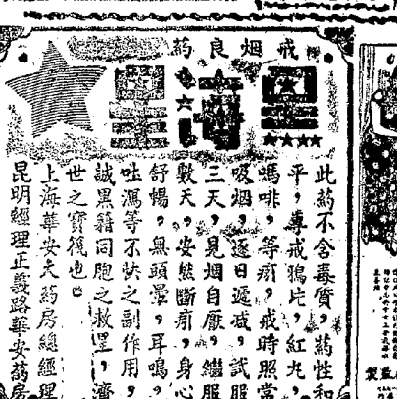 戒烟良葯
黑海星
此葯不含毒質,葯性和
平,專戒鴉片,紅丸,
嗎啡,等癮,戒時照常
吸烟,逐日遞减,試服
三天,見烟自厭,繼服
數天,安然斷癮,身心
舒暢,無頭暈,耳鳴,
吐瀉等不快之副作用,
誠黑籍同胞之救星,濟
世之寶筏也。
上海華安大葯房總經理
昆明經理正義路華安葯房